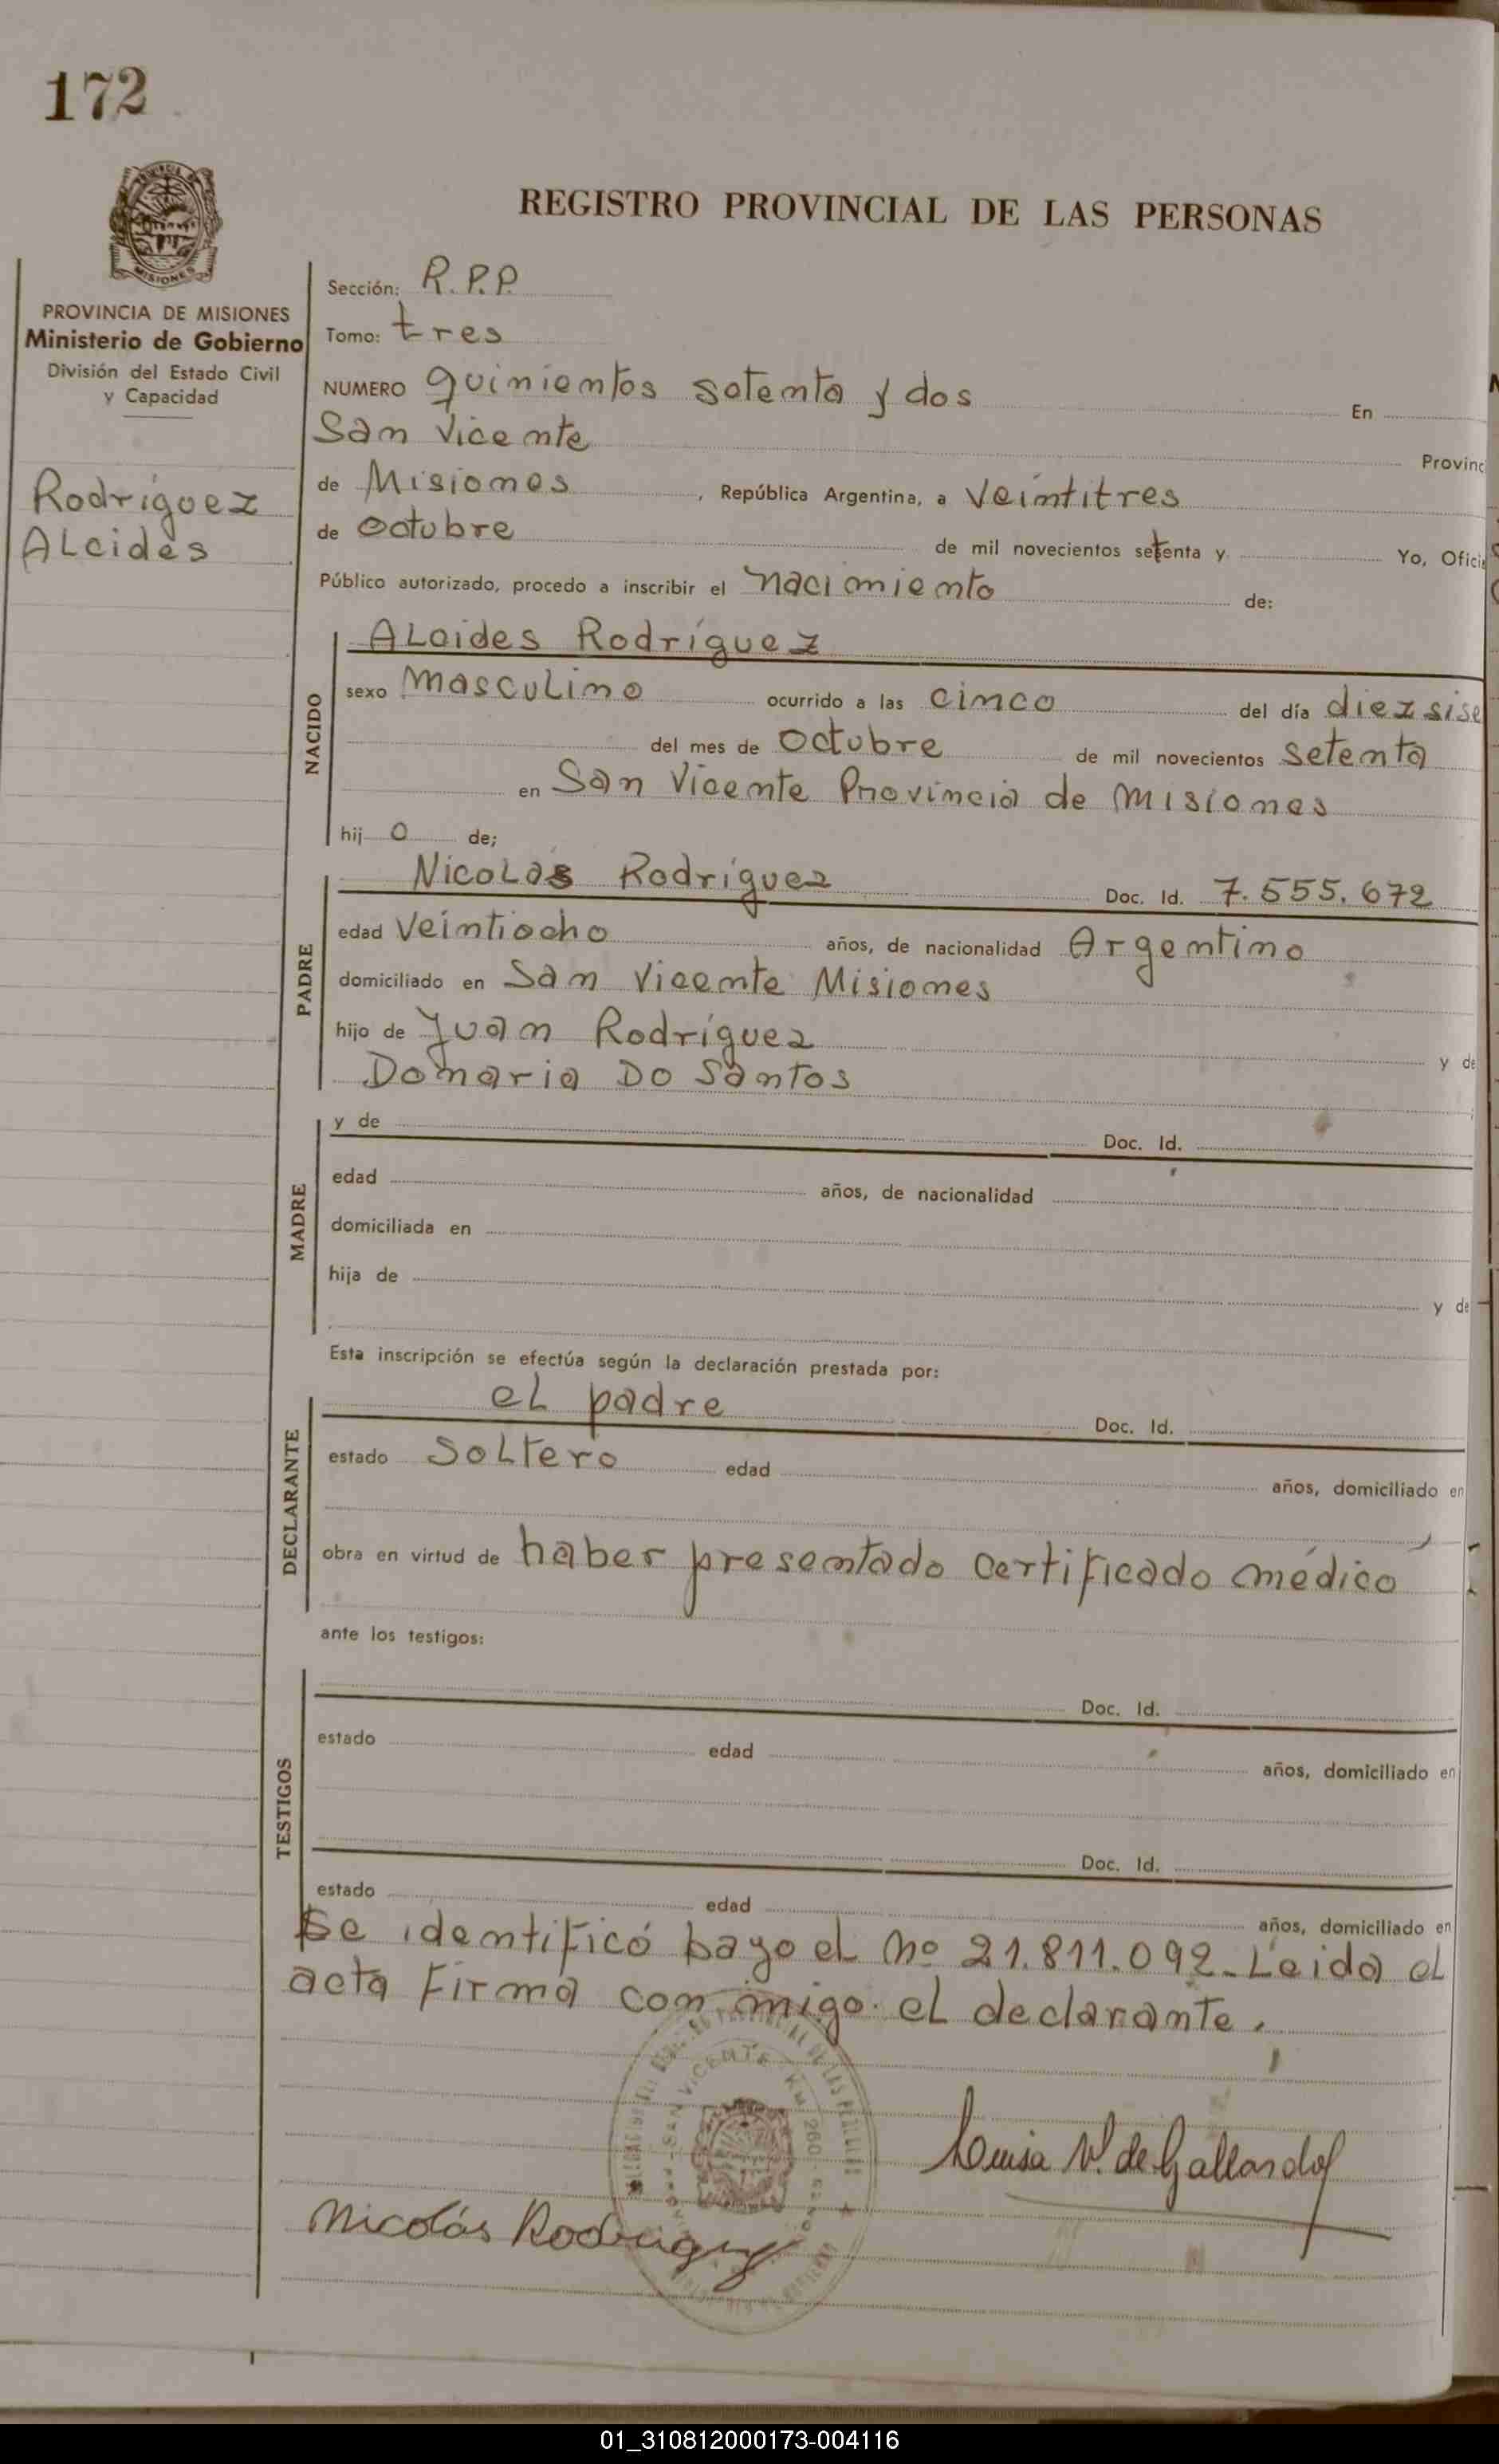 172
MISIONES
REGISTRO PROVINCIAL DE LAS PERSONAS
PROVINCIA DE MISIONES
Ministerio de Gobierno
División del Estado Civil
y Capacidad
Rodríguez
ALcides
Sección: R.P.P.
Tomo: tres
NUMERO quinientos setenta y dos En
San Vicente Provinc
de Misiones, República Argentina, a Veintitres
de octubre de mil novecientos setenta y Yo, Ofici
Público autorizado, procedo a inscribir el nacimiento de:
NACIDO
ALcides Rodríguez
sexo masculino ocurrido a las cinco del día diez sise
del mes de octubre de mil novecientos setenta
en San Vicente Provincia de misiones
hij o de;
PADRE
NicoLás Rodríguez Doc. Id. 7.555.672
edad Veintiocho años, de nacionalidad Argentino
domiciliado en San Vicente Misiones
hijo de Juan Rodríguez y de
Domaria Do Santos
MADRE
y de Doc. Id.
edad años, de nacionalidad
domiciliada en
hija de y de
Esta inscripción se efectúa según la declaración prestada por:
DECLARANTE
eL padre Doc. Id.
estado SoLtero edad años, domiciliado en
obra en virtud de haber presentado certificado médico
ante los testigos:
TESTIGOS
Doc. Id.
estado edad años, domiciliado en
Doc. Id.
estado edad años, domiciliado en
Se identificó bayo eL no 21.811.092-Leida eL
acta firma con migo eL declarante.
SAN VICENTE KM 260
Luisa V. de Gallardo
Nicolás Rodriguez
01_310812000173-004116